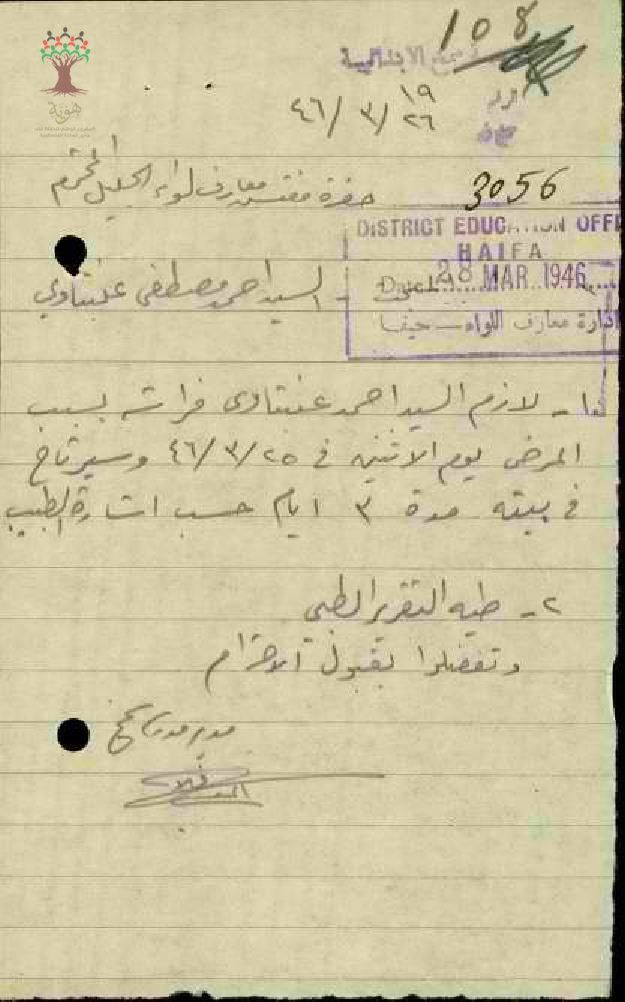 108
الابتدائية
الرقم ١٩
٢٦ / ٣ / ٤٦
3056
حضرة مفتش معارف لواء الجليل المحترم
DISTRICT EDUCATION OFFI
HAIFA
28 MAR 1946
ادارة معارف اللواء - حيفا
السيد احمد مصطفى عنبتاوي
١- لازم السيد احمد عنبتاوي فراشه بسبب
المرض يوم الاثنين في ٢٥/٣/٤٦ وسيرتاح
في بيته مدة ٣ ايام حسب اشارة الطبيب
٢- طيه التقرير الطبي
وتفضلوا بقبول الاحترام
مدير مدرسة